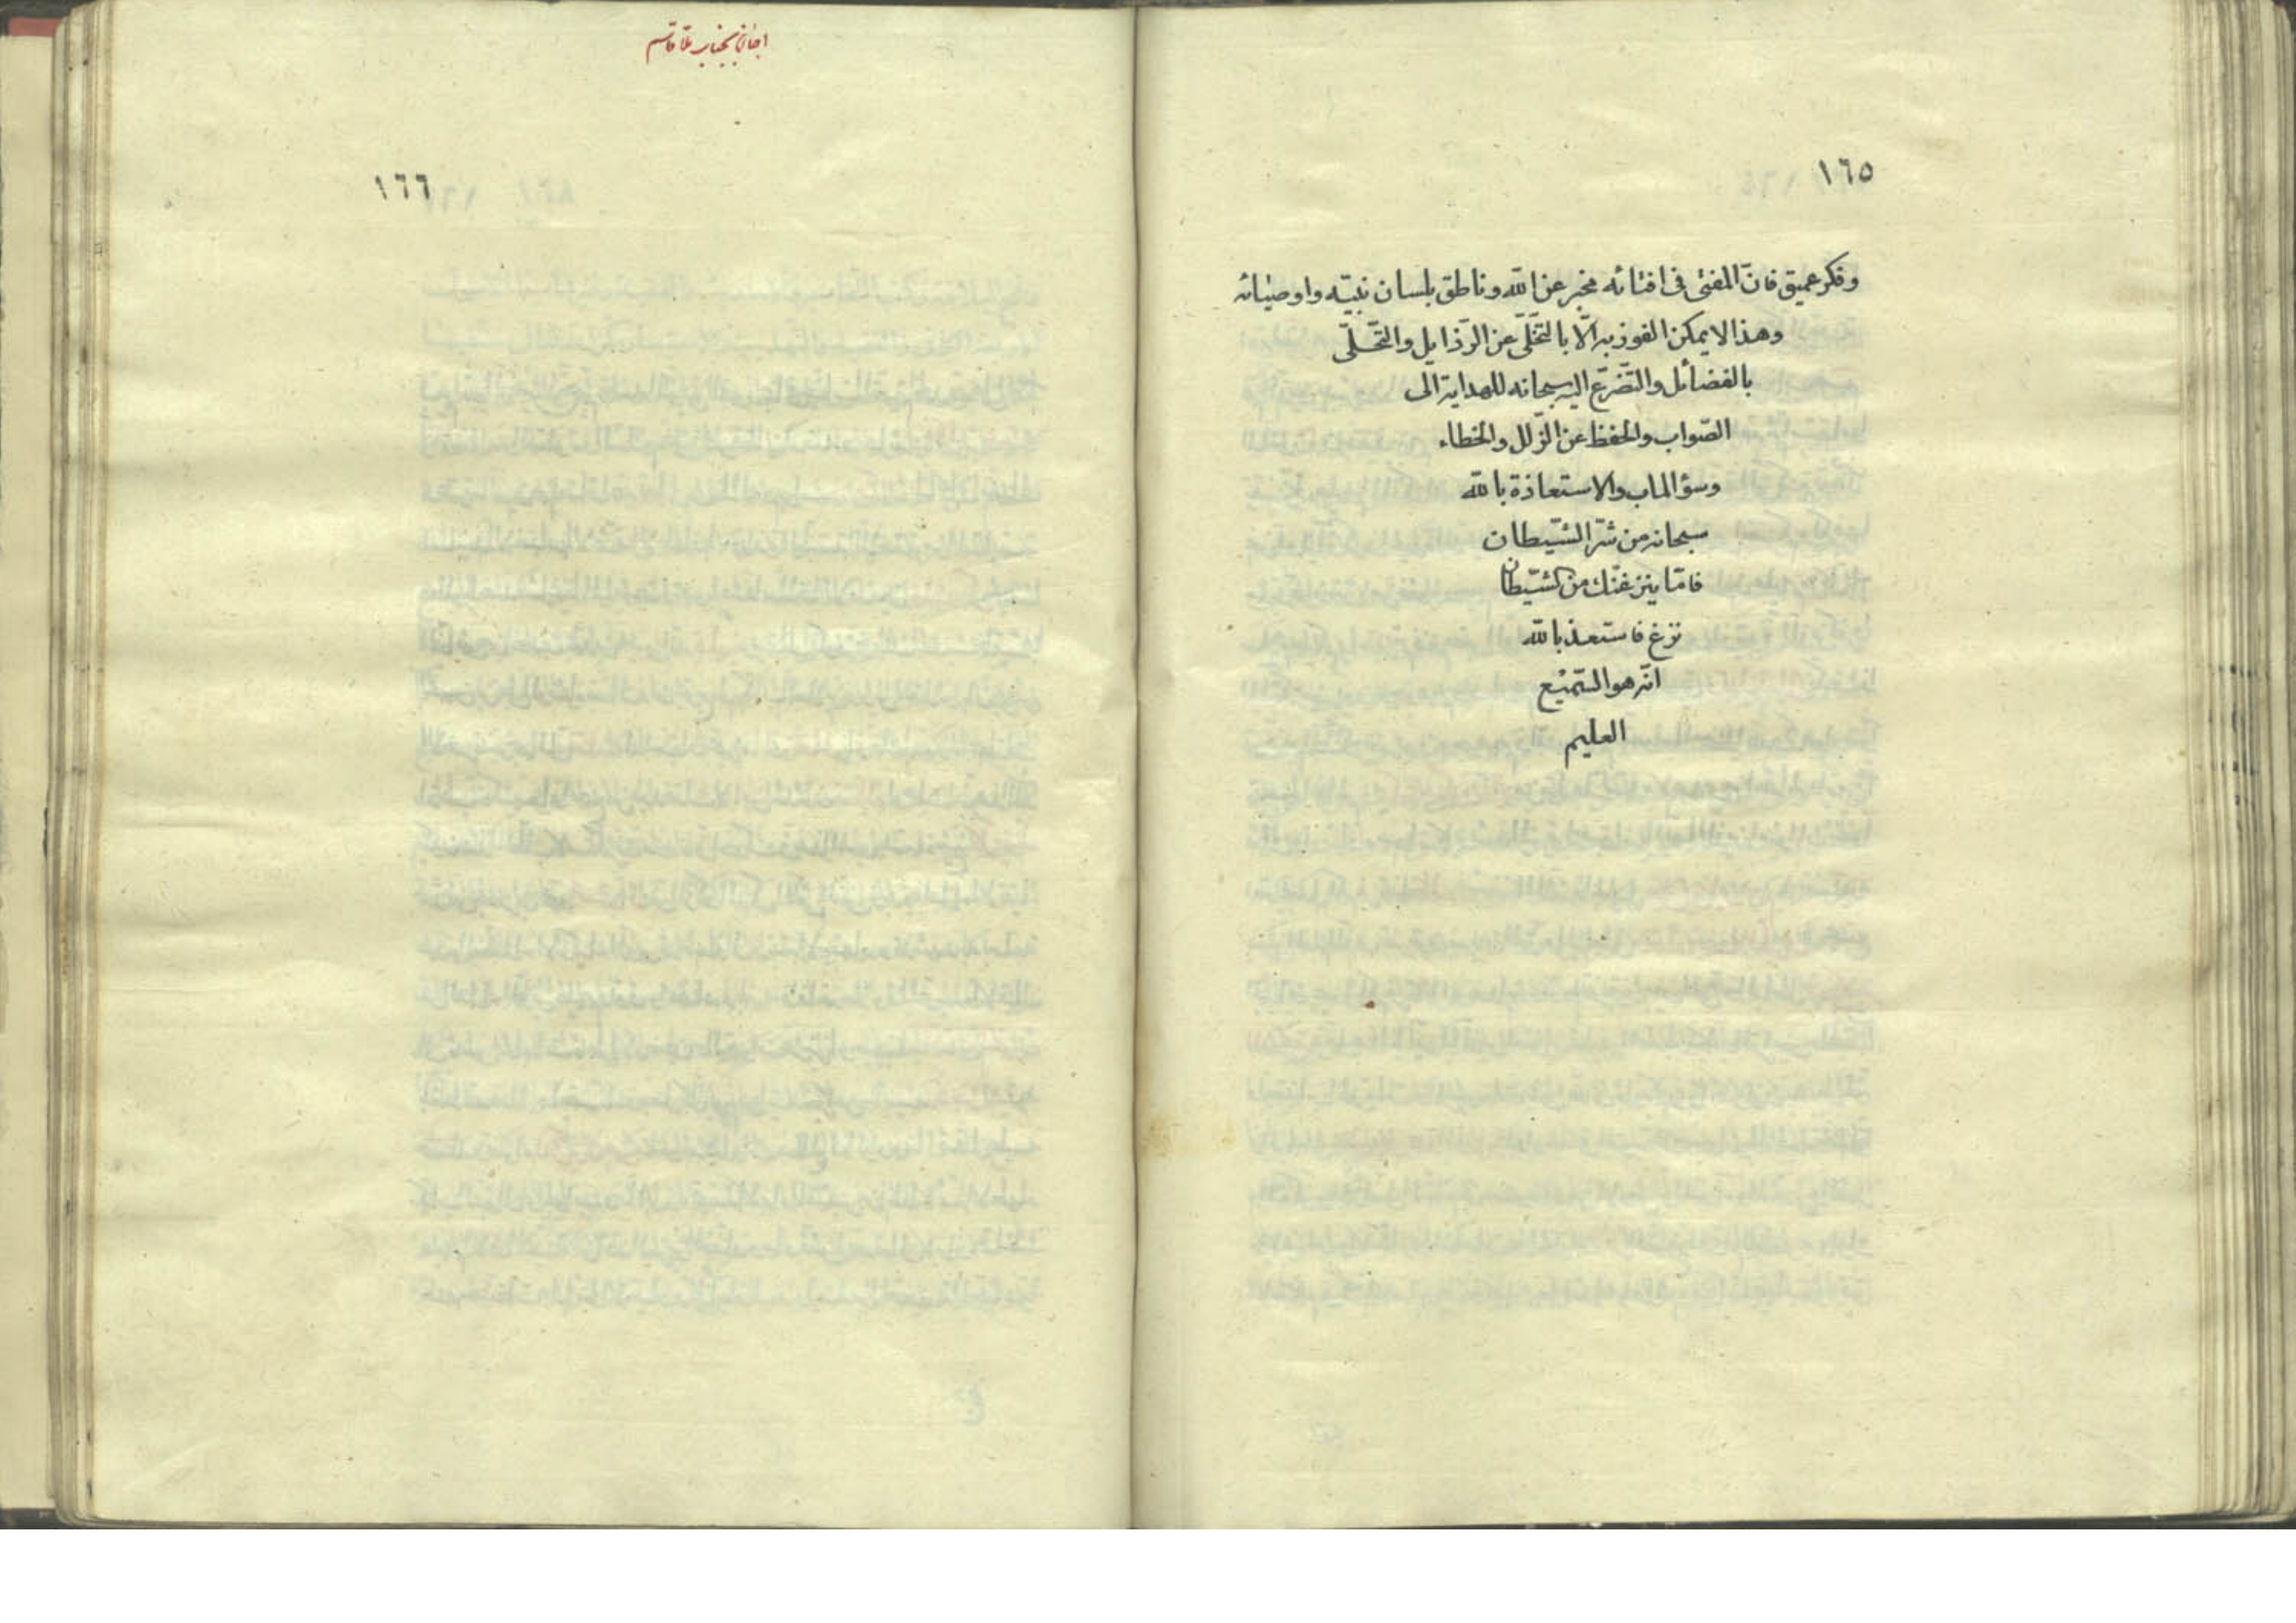 ١٦٥
وفكر عميق فانّ المفتى فى افتائه مخبر عن الله وناطق بلسان نبيّه واوصيائه
وهذا لا يمكن الفوز به الّا بالتّخلّى عن الرّذايل والتّحلّى
بالفضائل والتّضرّع اليه سبحانه للهداية الى
الصّواب والحفظ عن الزّلل والخطاء
وسؤ الماب والاستعاذة بالله
سبحانه من شرّ الشّيطان
فامّا ينزغنّك من الشّيطان
نزغ فاستعذ بالله
انّه هو السّميع
العليم
١٦٦